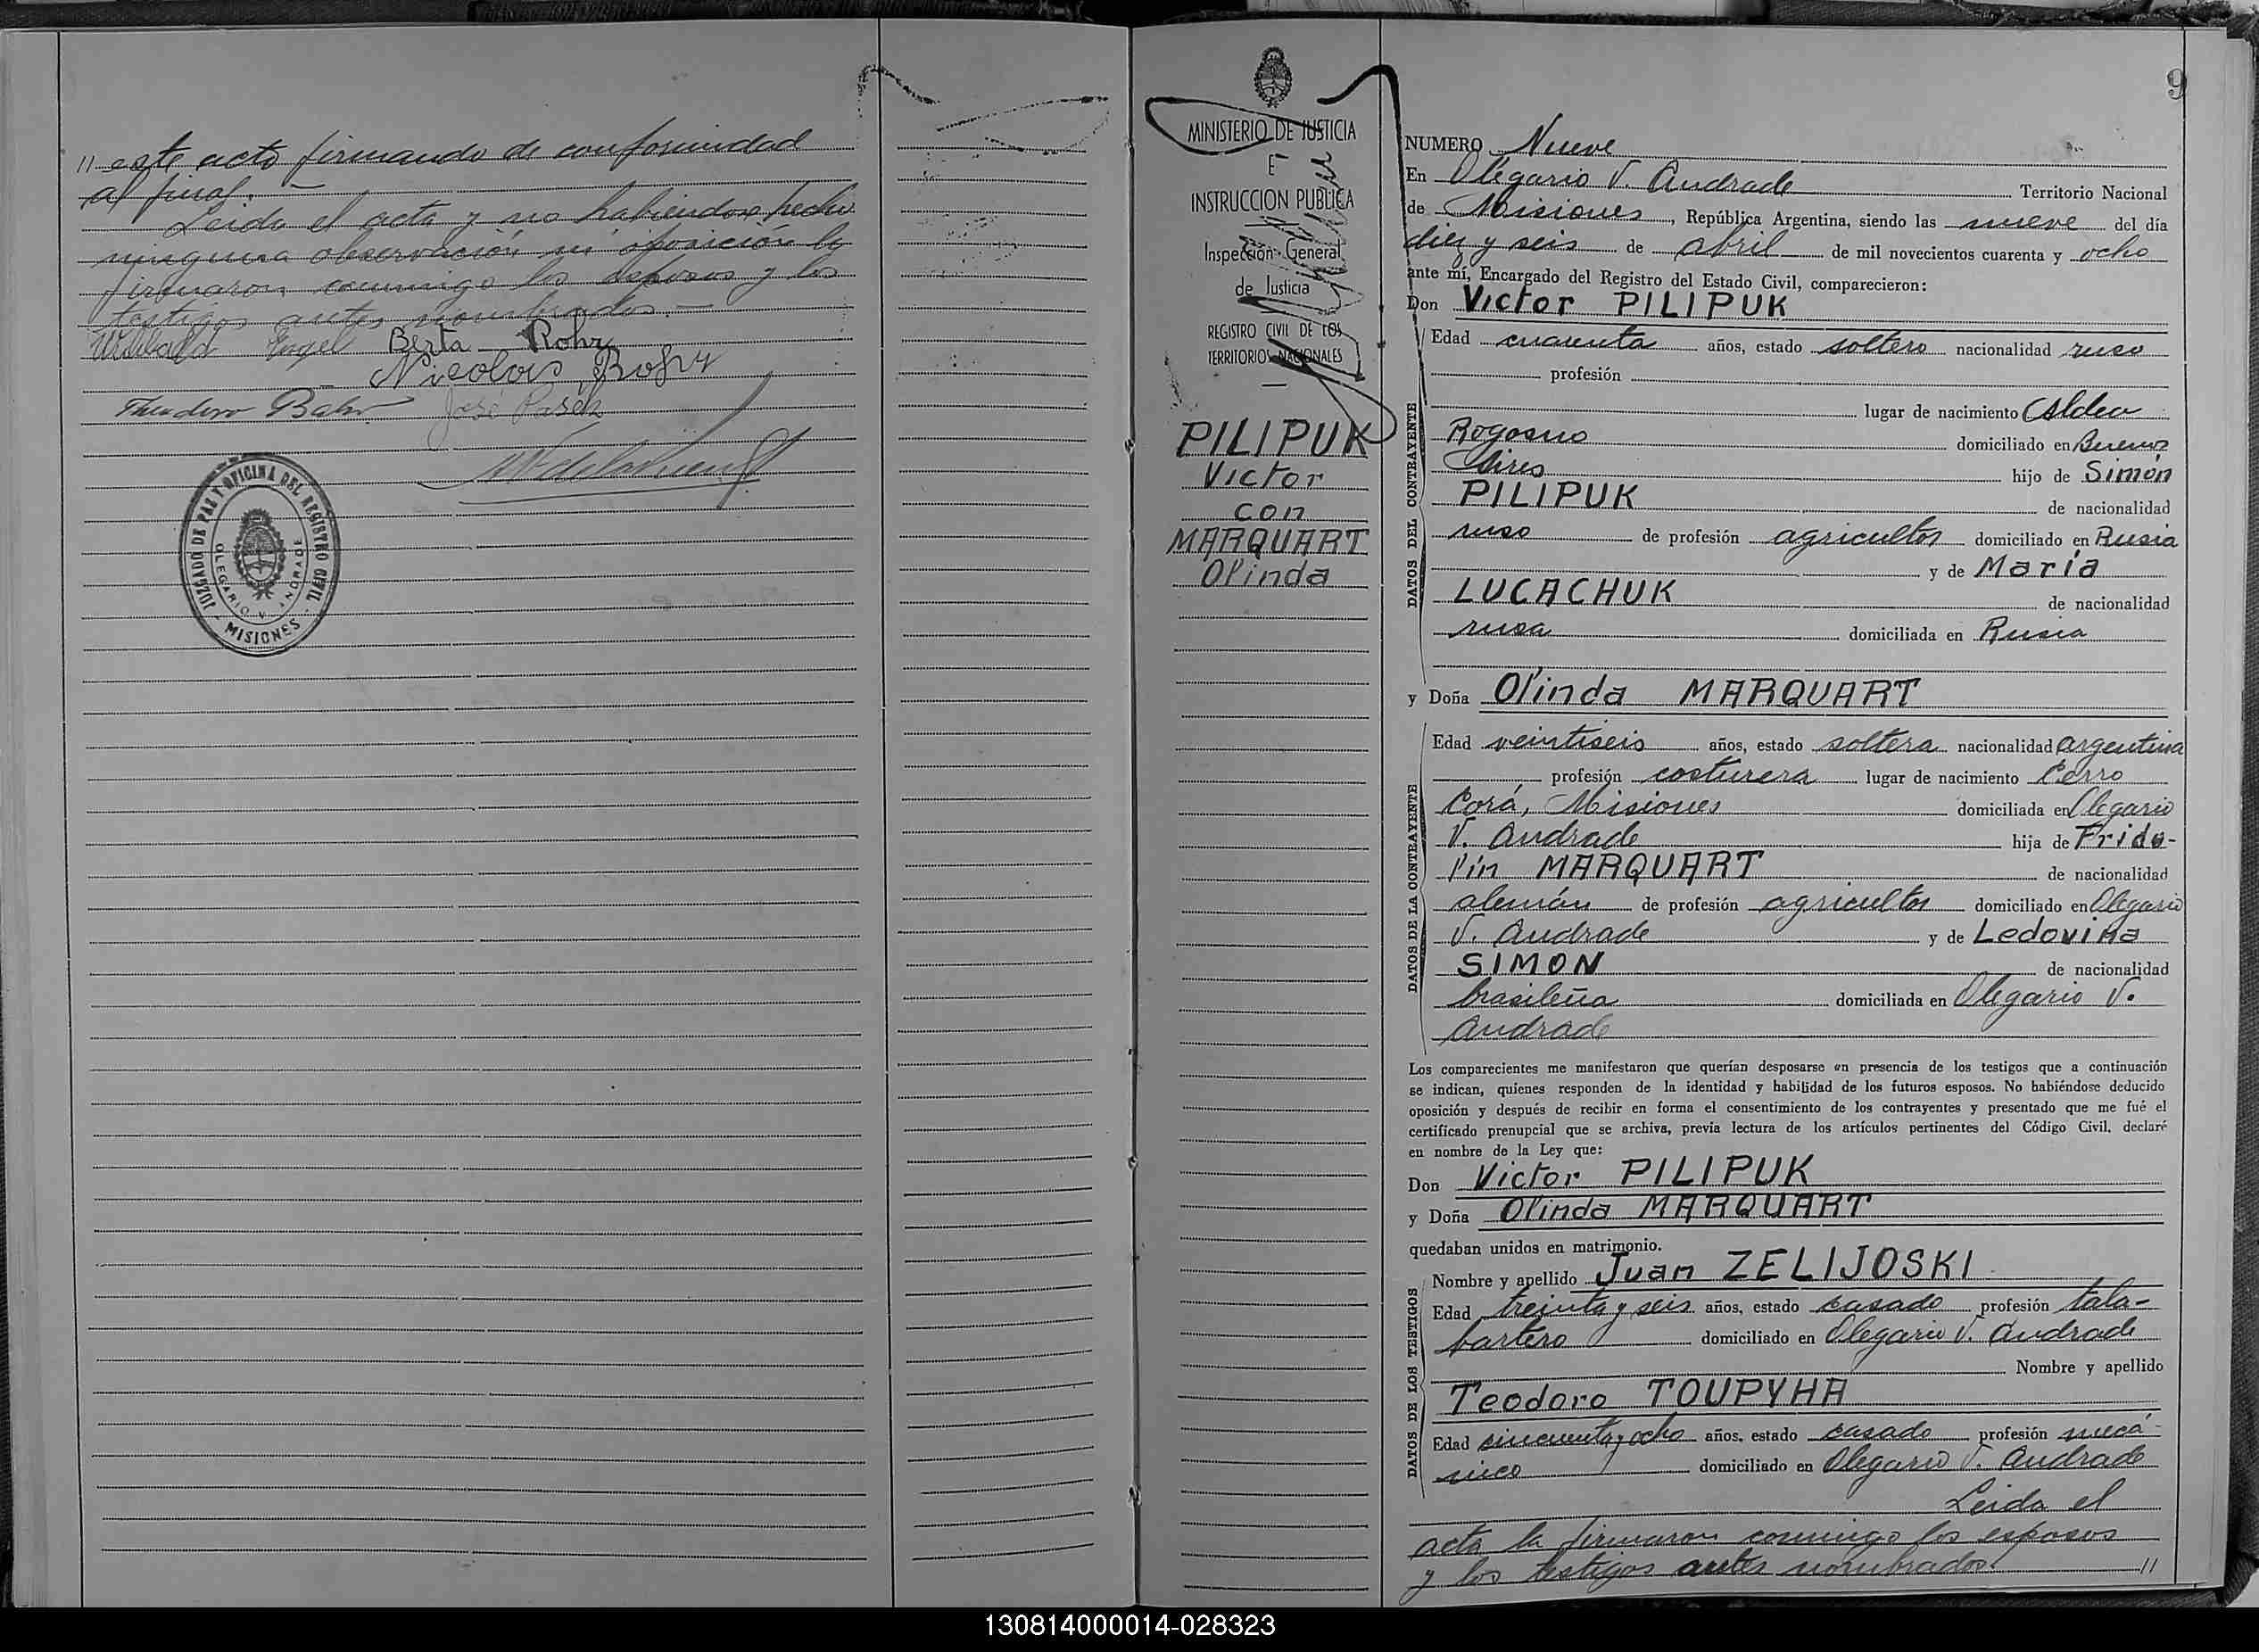 // este acto firmando de conformidad
al final.—
Leida el acta y no habiendose hecho
ninguna observación ni oposición la
firmaron conmigo los esposos y los
testigos antes nombrados.—
Wilibald Engel Berta Rohr
Nicolous Rohr
Theodoro Bahr José Pasch
JUZGADO DE PAZ Y OFICINA DEL REGISTRO CIVIL
OLEGARIO V. ANDRADE
MISIONES
MINISTERIO DE JUSTICIA
E
INSTRUCCION PUBLICA
Inspección General
de Justicia
REGISTRO CIVIL DE LOS
TERRITORIOS NACIONALES
PILIPUK
Victor
con
MARQUART
Olinda
9
NUMERO Nueve
En Olegario V. Andrade Territorio Nacional
de Misiones, República Argentina, siendo las nueve del día
diez y seis de abril de mil novecientos cuarenta y ocho
ante mí, Encargado del Registro del Estado Civil, comparecieron:
Don Victor PILIPUK
DATOS DEL CONTRAYENTE
Edad cuarenta años, estado soltero nacionalidad ruso
profesión
lugar de nacimiento Aldea
Rogosno domiciliado en Buenos
Aires hijo de Simón
PILIPUK de nacionalidad
ruso de profesión agricultor domiciliado en Rusia
y de María
LUCACHUK de nacionalidad
rusa domiciliada en Rusia
y Doña Olinda MARQUART
DATOS DE LA CONTRAYENTE
Edad veintiseis años, estado soltera nacionalidad argentina
profesión costurera lugar de nacimiento Cerro
Corá, Misiones domiciliada en Olegario
V. Andrade hija de Frido-
lín MARQUART de nacionalidad
alemán de profesión agricultor domiciliado en Olegario
V. Andrade y de Ledovina
SIMON de nacionalidad
brasileña domiciliada en Olegario V.
Andrade
Los comparecientes me manifestaron que querían desposarse en presencia de los testigos que a continuación
se indican, quienes responden de la identidad y habilidad de los futuros esposos. No habiéndose deducido
oposición y después de recibir en forma el consentimiento de los contrayentes y presentado que me fué el
certificado prenupcial que se archiva, previa lectura de los artículos pertinentes del Código Civil, declaré
en nombre de la Ley que:
Don Victor PILIPUK
y Doña Olinda MARQUART
quedaban unidos en matrimonio.
DATOS DE LOS TESTIGOS
Nombre y apellido Juan ZELIJOSKI
Edad treinta y seis años, estado casado profesión tala-
bartero domiciliado en Olegario V. Andrade
Nombre y apellido
Teodoro TOUPYHA
Edad cincuenta y ocho años, estado casado profesión mecá-
nico domiciliado en Olegario V. Andrade
Leida el
acta la firmaron conmigo los esposos
y los testigos antes nombrados. //
130814000014-028323